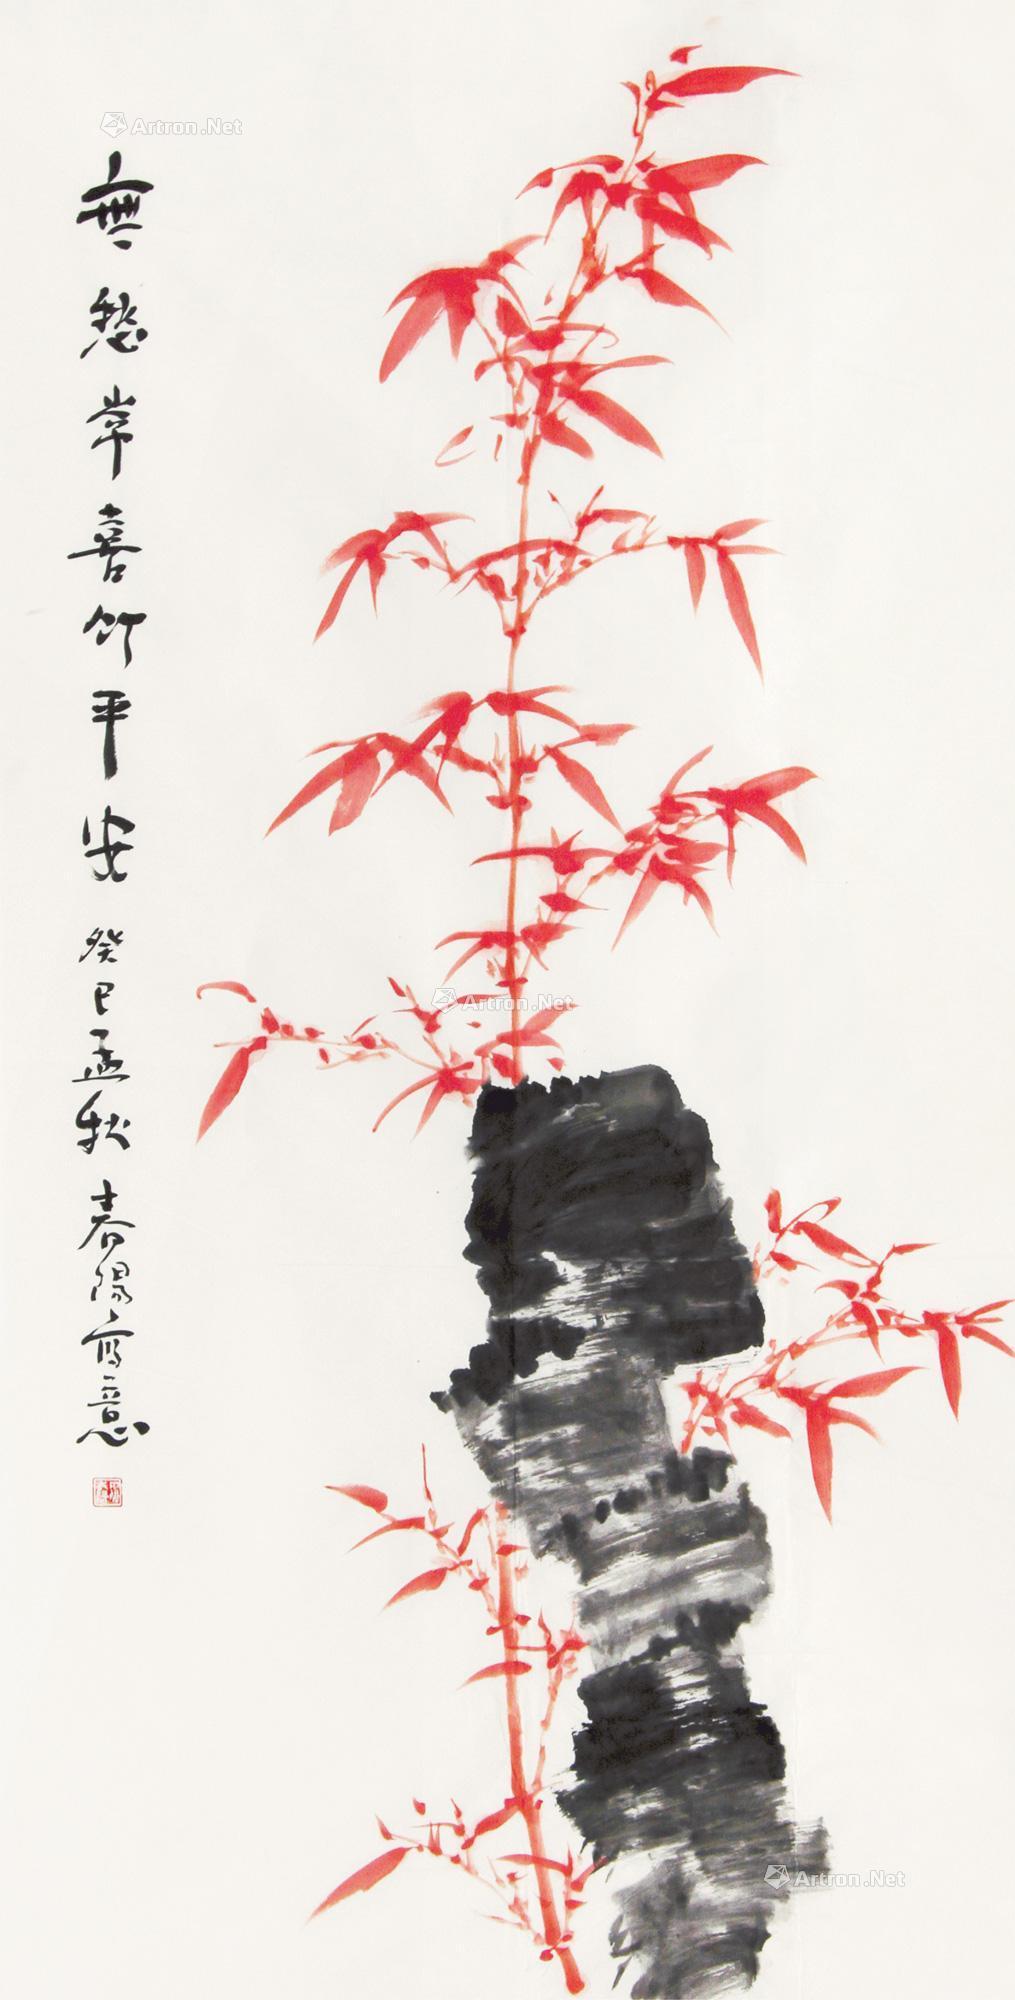 Artron.Net
無愁常喜竹平安 癸巳孟秋 春陽寫意
Artron.Net
Artron.Net